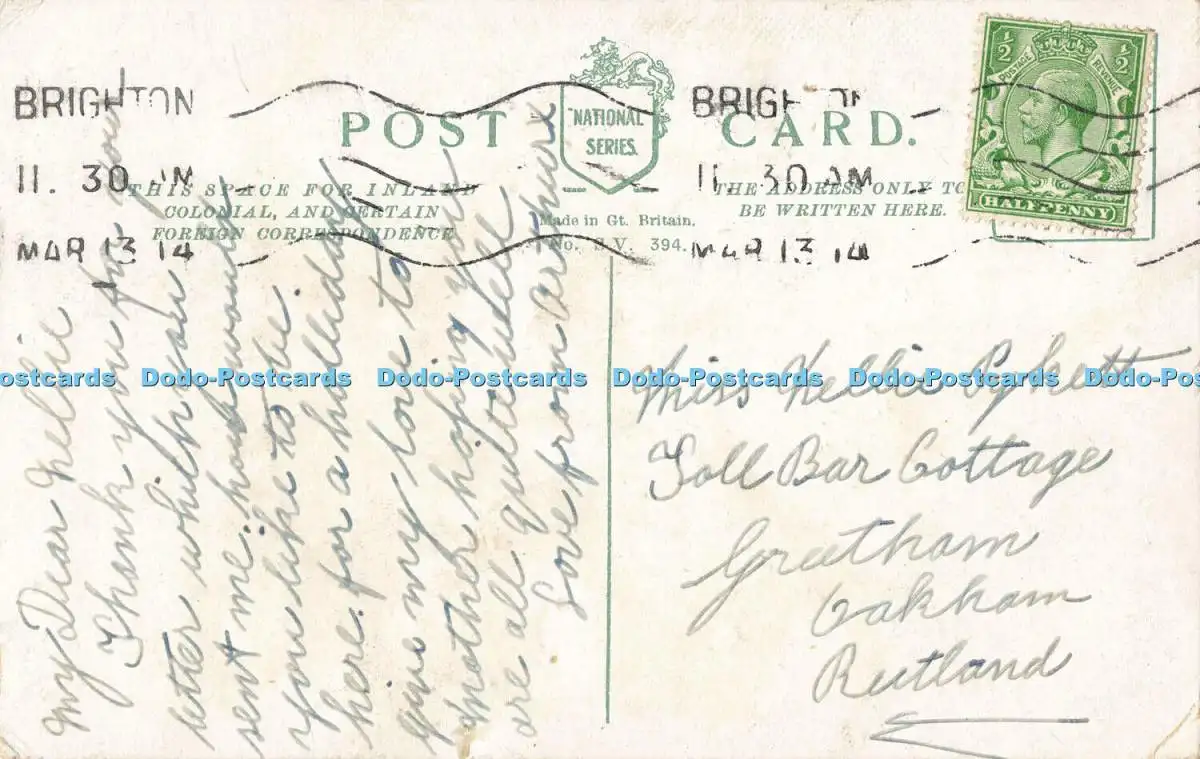 BRIGHTON
11. 30 AM
MAR 13 14
POST CARD.
NATIONAL
SERIES.
BRIGHTON
11. 30 AM
MAR 13 14
½ ½
POSTAGE REVENUE
HALFPENNY
THIS SPACE FOR INLAND
COLONIAL, AND CERTAIN
FOREIGN CORRESPONDENCE
Made in Gt. Britain.
No. V. 394.
THE ADDRESS ONLY TO
BE WRITTEN HERE.
My Dear Nellie
Thank you for your
letter which you
sent me. how would
you like to be
here. for a holliday
give my love to
Mother hoping you
are all quite well
Love from Arthur x
Miss Nellie
Toll Bar Cottage
Greetham
Oakham
Rutland
Dodo-Postcards Dodo-Postcards Dodo-Postcards Dodo-Postcards Dodo-Postcards Dodo-Postcards